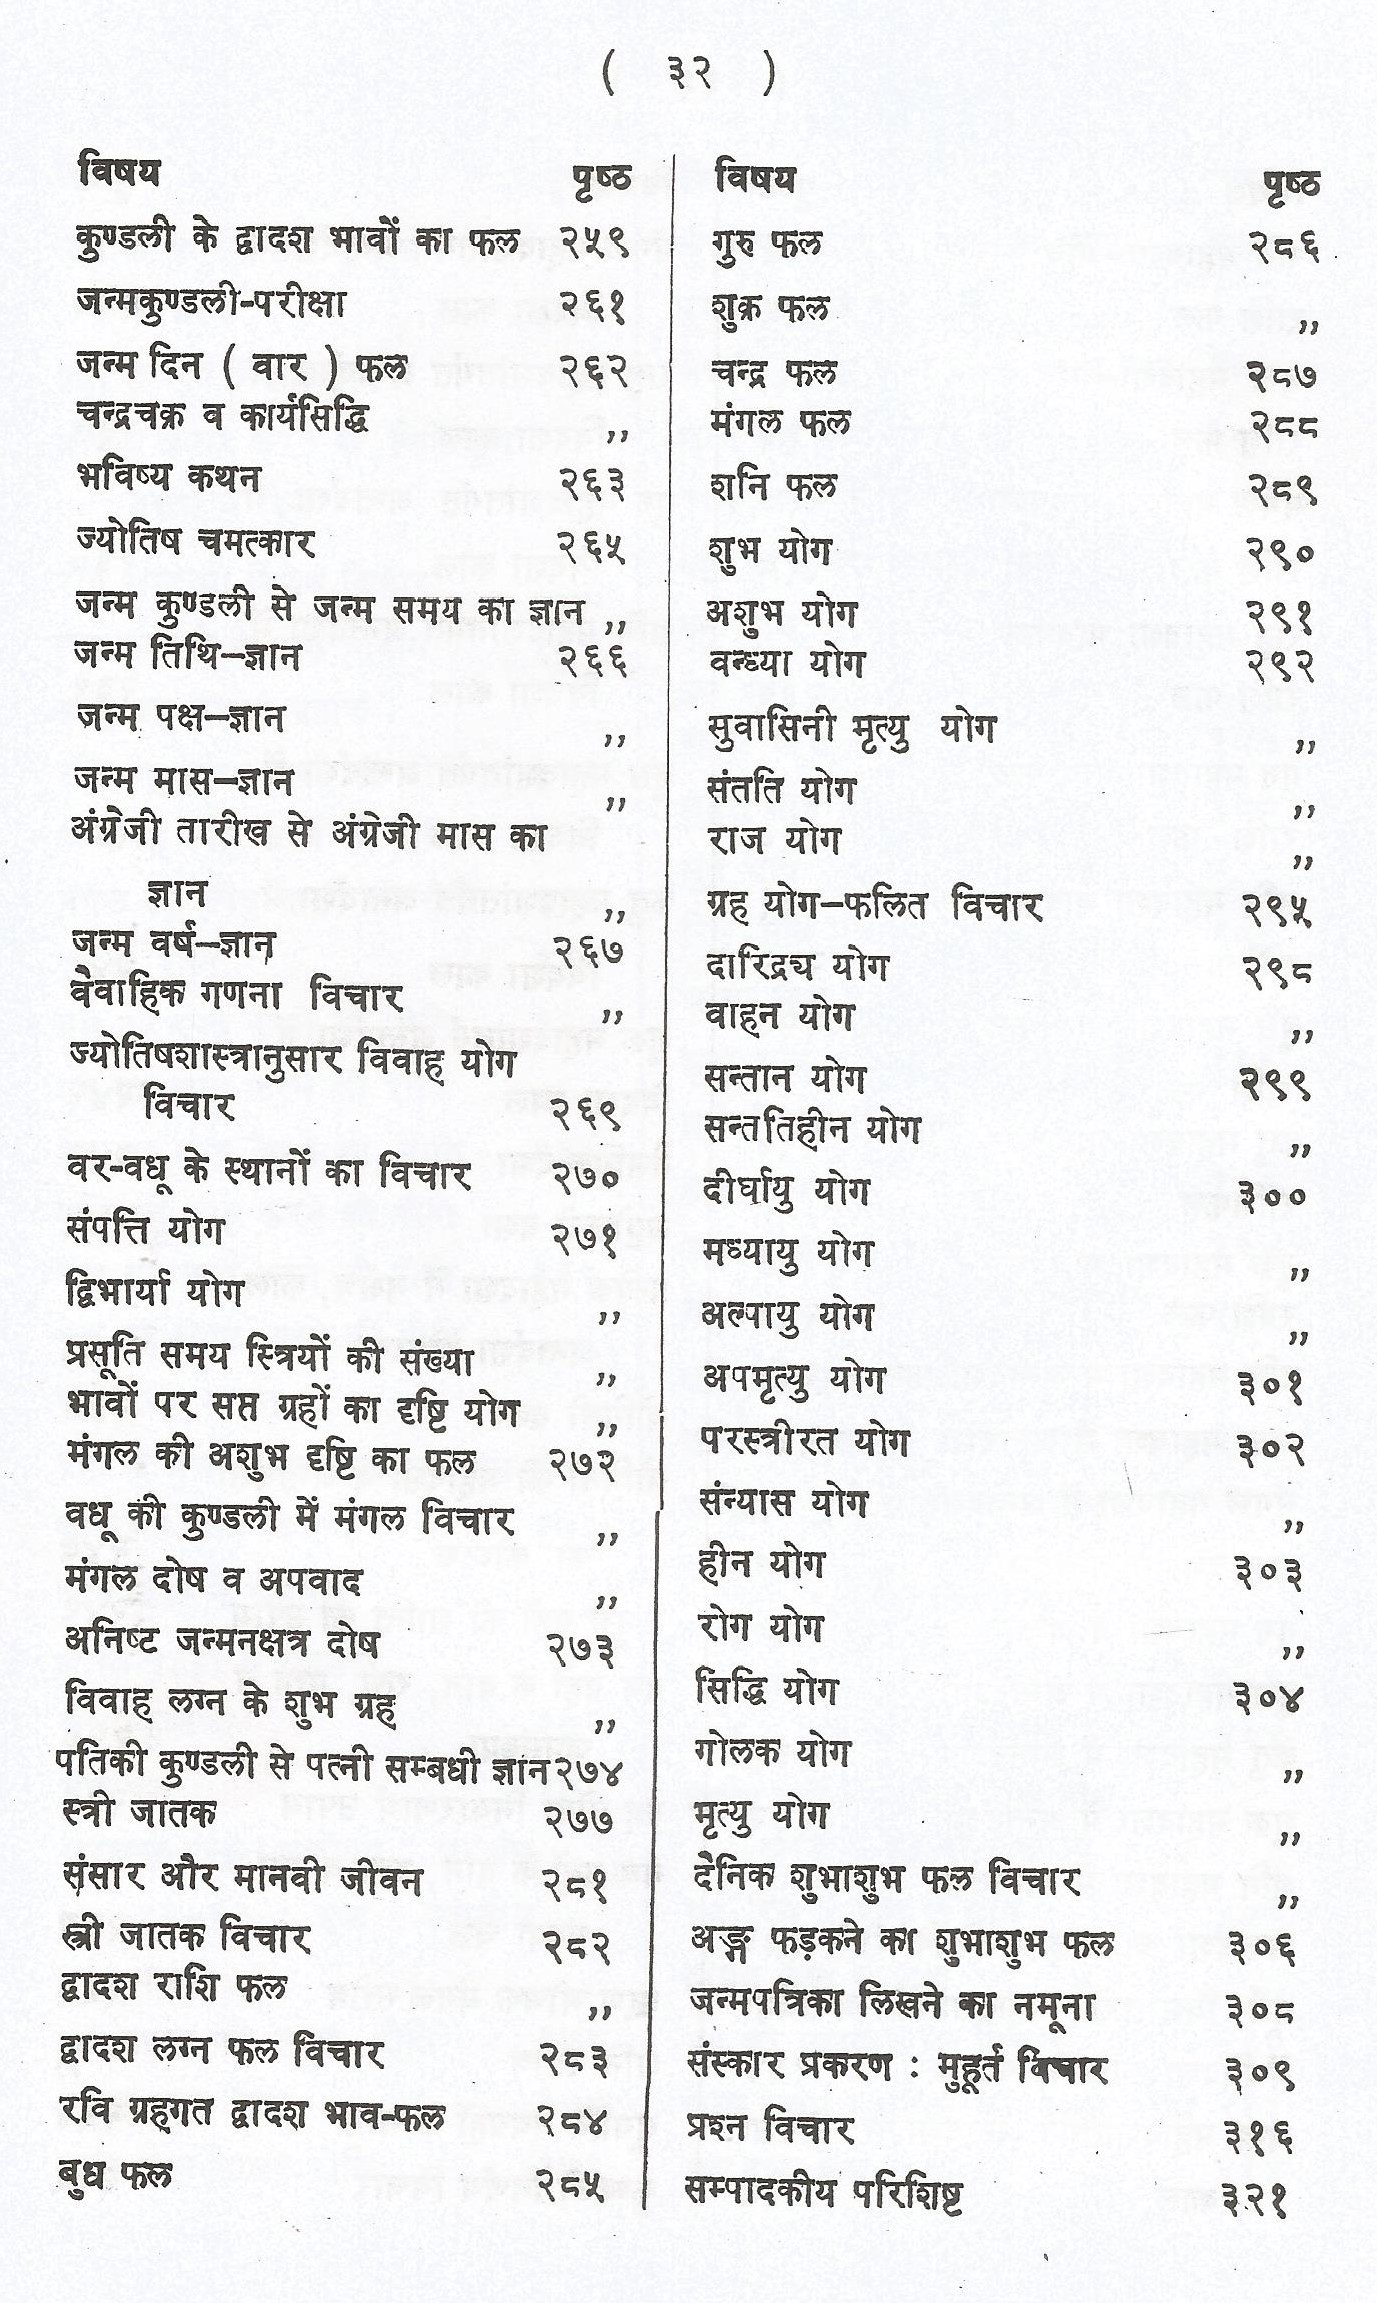 ( ३२ )
विषय पृष्ठ
कुण्डली के द्वादश भावों का फल २५९
जन्मकुण्डली-परीक्षा २६१
जन्म दिन ( वार ) फल २६२
चन्द्रचक्र व कार्यसिद्धि ,,
भविष्य कथन २६३
ज्योतिष चमत्कार २६५
जन्म कुण्डली से जन्म समय का ज्ञान ,,
जन्म तिथि–ज्ञान २६६
जन्म पक्ष–ज्ञान ,,
जन्म मास–ज्ञान ,,
अंग्रेजी तारीख से अंग्रेजी मास का
ज्ञान ,,
जन्म वर्ष–ज्ञान २६७
वैवाहिक गणना विचार ,,
ज्योतिषशास्त्रानुसार विवाह योग
विचार २६९
वर-वधू के स्थानों का विचार २७०
संपत्ति योग २७१
द्विभार्या योग ,,
प्रसूति समय स्त्रियों की संख्या ,,
भावों पर सप्त ग्रहों का दृष्टि योग ,,
मंगल की अशुभ दृष्टि का फल २७२
वधू की कुण्डली में मंगल विचार ,,
मंगल दोष व अपवाद ,,
अनिष्ट जन्मनक्षत्र दोष २७३
विवाह लग्न के शुभ ग्रह ,,
पतिकी कुण्डली से पत्नी सम्बधी ज्ञान २७४
स्त्री जातक २७७
संसार और मानवी जीवन २८१
स्त्री जातक विचार २८२
द्वादश राशि फल ,,
द्वादश लग्न फल विचार २८३
रवि ग्रहगत द्वादश भाव-फल २८४
बुध फल २८५
विषय पृष्ठ
गुरु फल २८६
शुक्र फल ,,
चन्द्र फल २८७
मंगल फल २८८
शनि फल २८९
शुभ योग २९०
अशुभ योग २९१
वन्ध्या योग २९२
सुवासिनी मृत्यु योग ,,
संतति योग ,,
राज योग ,,
ग्रह योग–फलित विचार २९५
दारिद्रय योग २९८
वाहन योग ,,
सन्तान योग २९९
सन्ततिहीन योग ,,
दीर्घायु योग ३००
मध्यायु योग ,,
अल्पायु योग ,,
अपमृत्यु योग ३०१
परस्त्रीरत योग ३०२
संन्यास योग ,,
हीन योग ३०३
रोग योग ,,
सिद्धि योग ३०४
गोलक योग ,,
मृत्यु योग ,,
दैनिक शुभाशुभ फल विचार ,,
अङ्ग फड़कने का शुभाशुभ फल ३०६
जन्मपत्रिका लिखने का नमूना ३०८
संस्कार प्रकरण : मुहूर्त विचार ३०९
प्रश्न विचार ३१६
सम्पादकीय परिशिष्ट ३२१